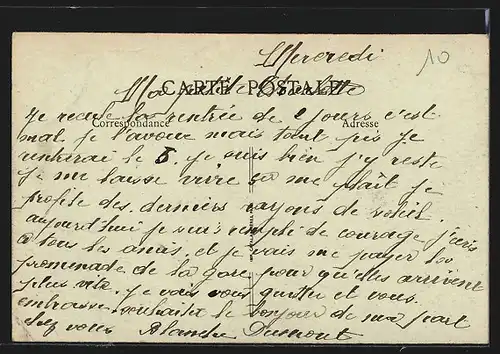 Mercredi
10
CARTE POSTALE
Ma petite
Je recule la rentrée de 2 jours c'est
Correspondance
Adresse
mal je l'avoue mais tant pis je
rentrerai le 5. je suis bien j'y reste
je me laisse vivre ça me plaît je
profite des derniers rayons de soleil.
aujourd'hui je suis remplie de courage j'écris
à tous les amis et je vais me payer la
promenade de la gare pour qu'elles arrivent
plus vite. je vais vous quitter et vous
embrasse souhaitez le bonjour de ma part
chez vous Blanche Dumont